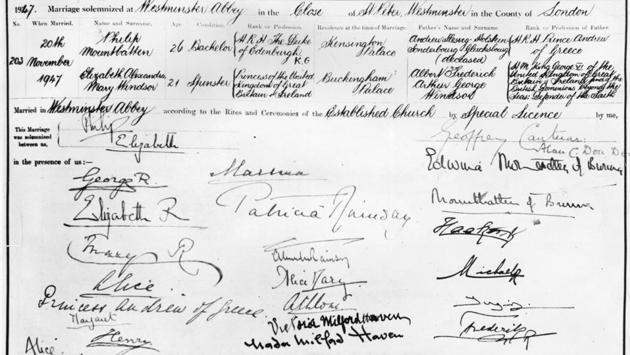 1947. Marriage solemnized at Westminster Abbey in the Close of St Peter, Westminster in the County of London
No. When Married. Name and Surname. Age Condition Rank or Profession Residence at the time of Marriage Father's Name and Surname Rank or Profession of Father
203
20th November 1947
Philip Mountbatten
26
Bachelor
H.R.H. The Duke of Edinburgh K.G
Kensington Palace
Andrew (deceased)
H.R.H. Prince Andrew of Greece
Elizabeth Alexandra Mary Windsor
21
Spinster
Princess of the United Kingdom of Great Britain & Ireland
Buckingham Palace
Albert Frederick Arthur George Windsor
H.M. King George VI of the United Kingdom of Great Britain & Ireland and of the British Dominions beyond the Seas: Defender of the Faith
Married in Westminster Abbey according to the Rites and Ceremonies of the Established Church by Special Licence by me,
This Marriage was solemnized between us,
Philip
Elizabeth
Geoffrey Cantuar:
Alan C. Don
in the presence of us:—
George R.
Marina
Edwina Mountbatten of Burma
Elizabeth R
Patricia
Mountbatten of Burma
Mary R
Haakon R
Alice
Alice Mary
Michael R
Princess Andrew of Greece
Athlone
Margaret
Victoria Milford Haven
Frederik R
Alice
Henry
Nada Milford Haven